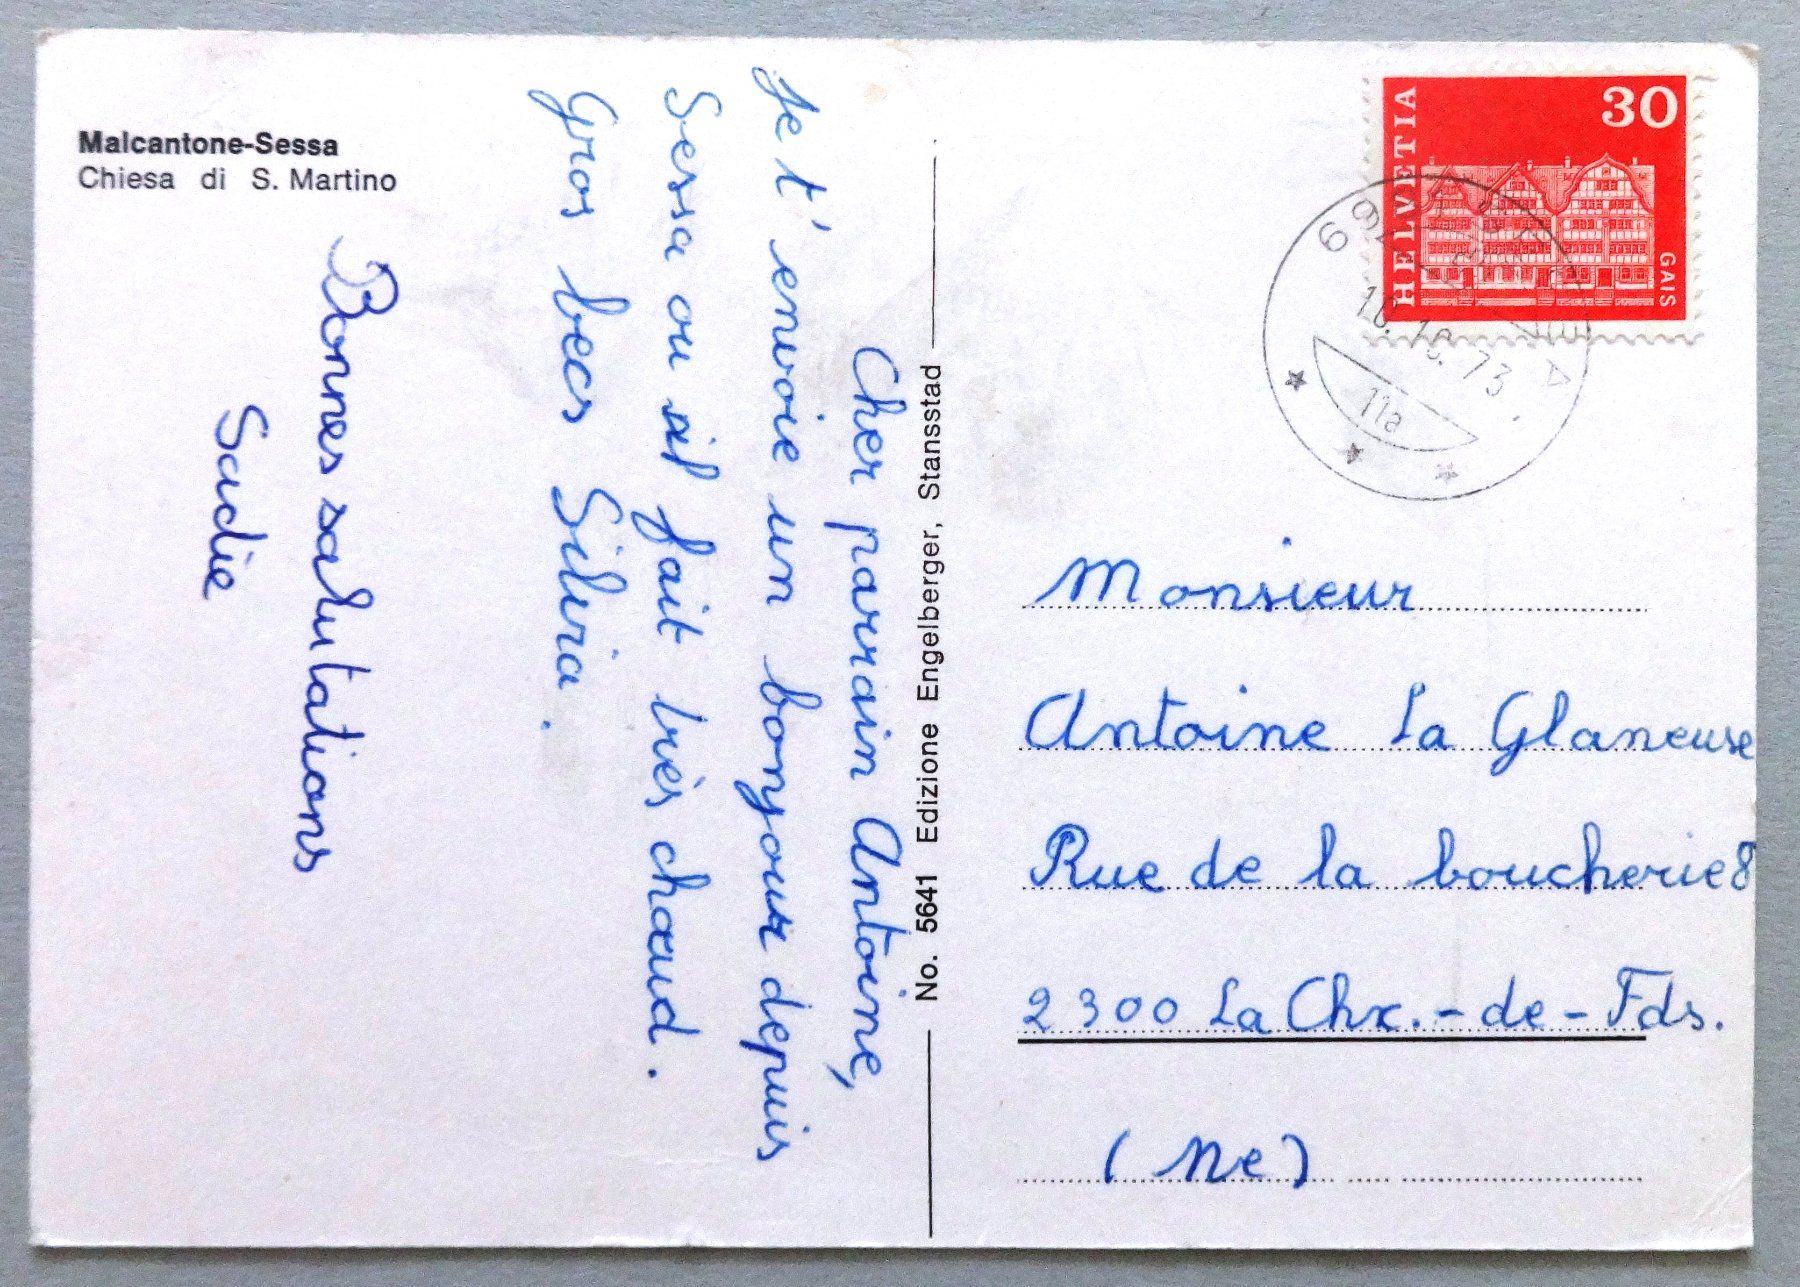 Malcantone-Sessa
Chiesa di S. Martino
Cher parrain Antoine,
Je t'envoie un bonjour depuis
Sessa ou il fait très chaud.
Gros becs Silvia.
Bonnes salutations
Sadie
No. 5641 Edizione Engelberger, Stansstad
HELVETIA
30
GAIS
10.10.73
11a
Monsieur
Antoine La Glaneuse
Rue de la boucherie 8
2300 La Chx.-de-Fds.
(Ne)